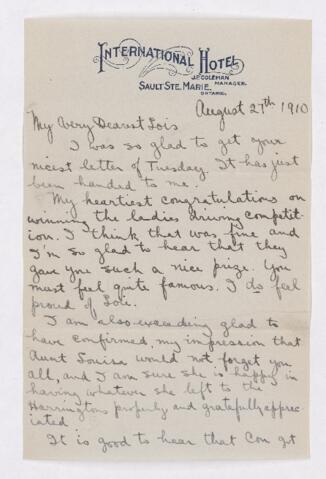 INTERNATIONAL HOTEL
J.P. COLEMAN
MANAGER.
SAULT STE. MARIE.
ONTARIO.
August 27th 1910
My Very Dearest Lois
I was so glad to get your
nicest letter of Tuesday. It has just
been handed to me.
My heartiest congratulations on
winning the ladies driving competit-
ion. I think that was fine and
I'm so glad to hear that they
gave you such a nice prize. You
must feel quite famous. I do feel
proud of Lois.
I am also exceeding glad to
have confirmed, my impression that
Aunt Louisa would not forget you
all, and I am sure she is happy in
having whatever she left to the
Harringtons properly and gratefully apprec-
iated
It is good to hear that Con get